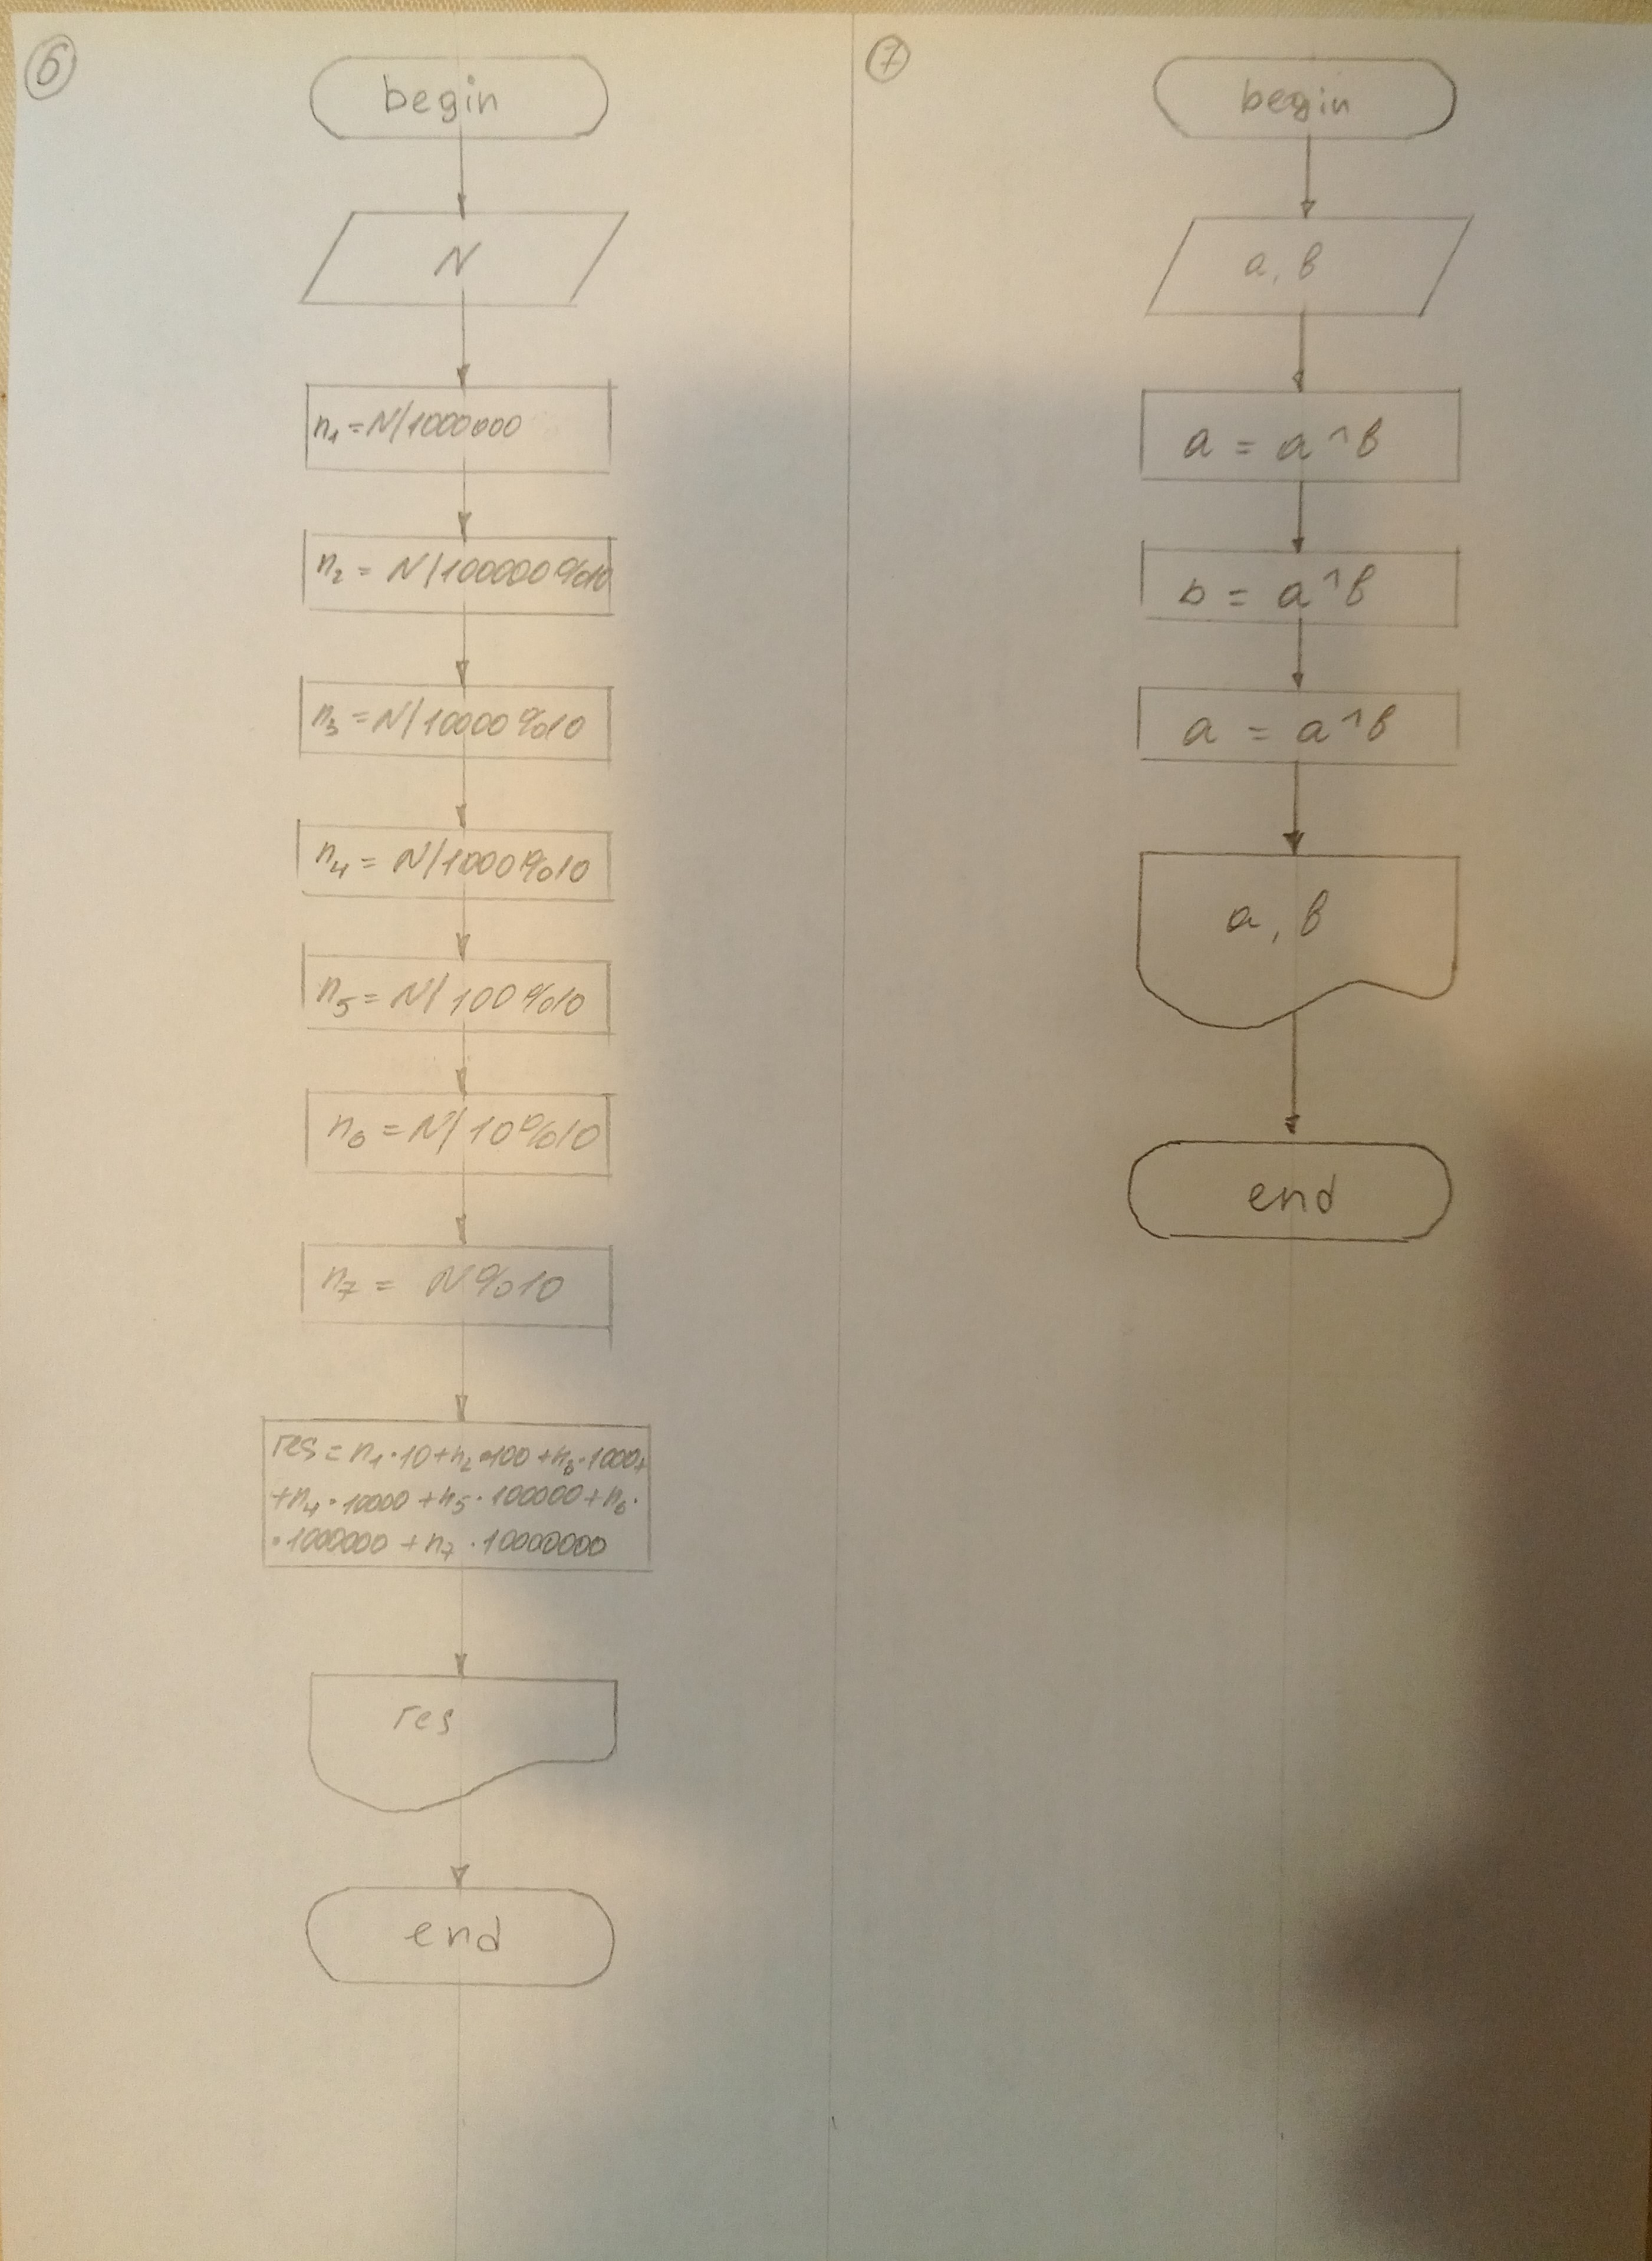 6
begin
N
n₁=N/1000000
n₂ = N/100000%10
n₃ =N/10000%10
n₄ = N/1000%10
n₅ = N/100%10
n₆ =N/10%10
n₇ = N%10
res = n₁·10+n₂·100+n₃·1000+
+n₄·10000+n₅·100000+n₆·
·1000000+n₇·10000000
res
end
7
begin
a, b
a = a^b
b = a^b
a = a^b
a, b
end